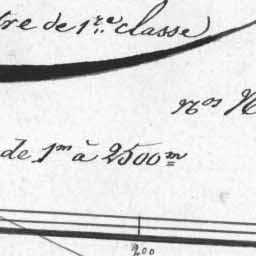 tre de 1re classe
nos N
de 1m à 2500m
200